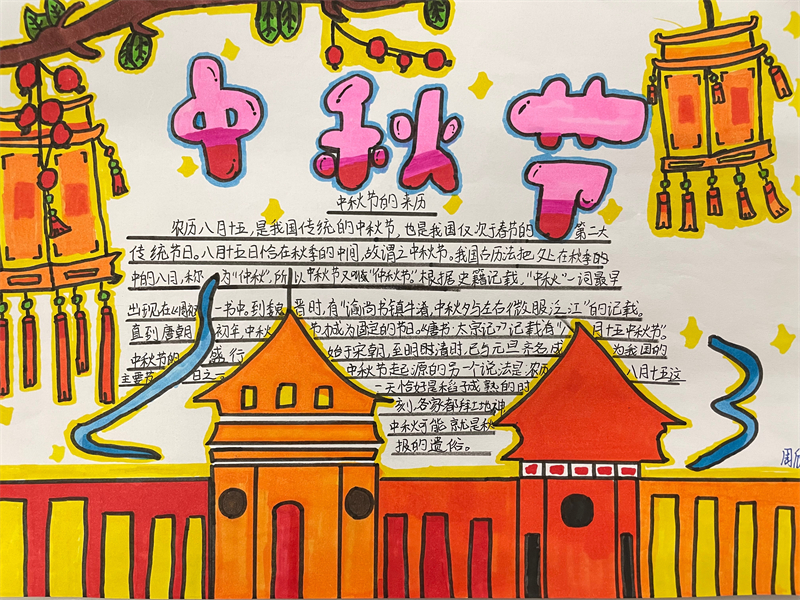 中秋节
中秋节的来历
农历八月十五,是我国传统的中秋节,也是我国仅次于春节的第二大
传统节日。八月十五日恰在秋季的中间,故谓之中秋节。我国古历法把处在秋季的
中的八月,称为"仲秋",所以中秋节又叫"仲秋节"。根据史籍记载,"中秋"一词最早
出现在《周礼》一书中。到魏晋时,有"谕尚书镇牛渚,中秋夕与左右微服泛江"的记载。
直到唐朝初年,中秋节才成为固定的节日。《唐书·太宗记》记载有"八月十五中秋节"。
中秋节的盛行始于宋朝,至明时清时,已与元旦齐名成为我国的
主要节日之一。中秋节起源的另一个说法是:农历八月十五这
一天恰好是稻子成熟的时
刻,各家都拜土地神
中秋可能就是秋
报的遗俗。